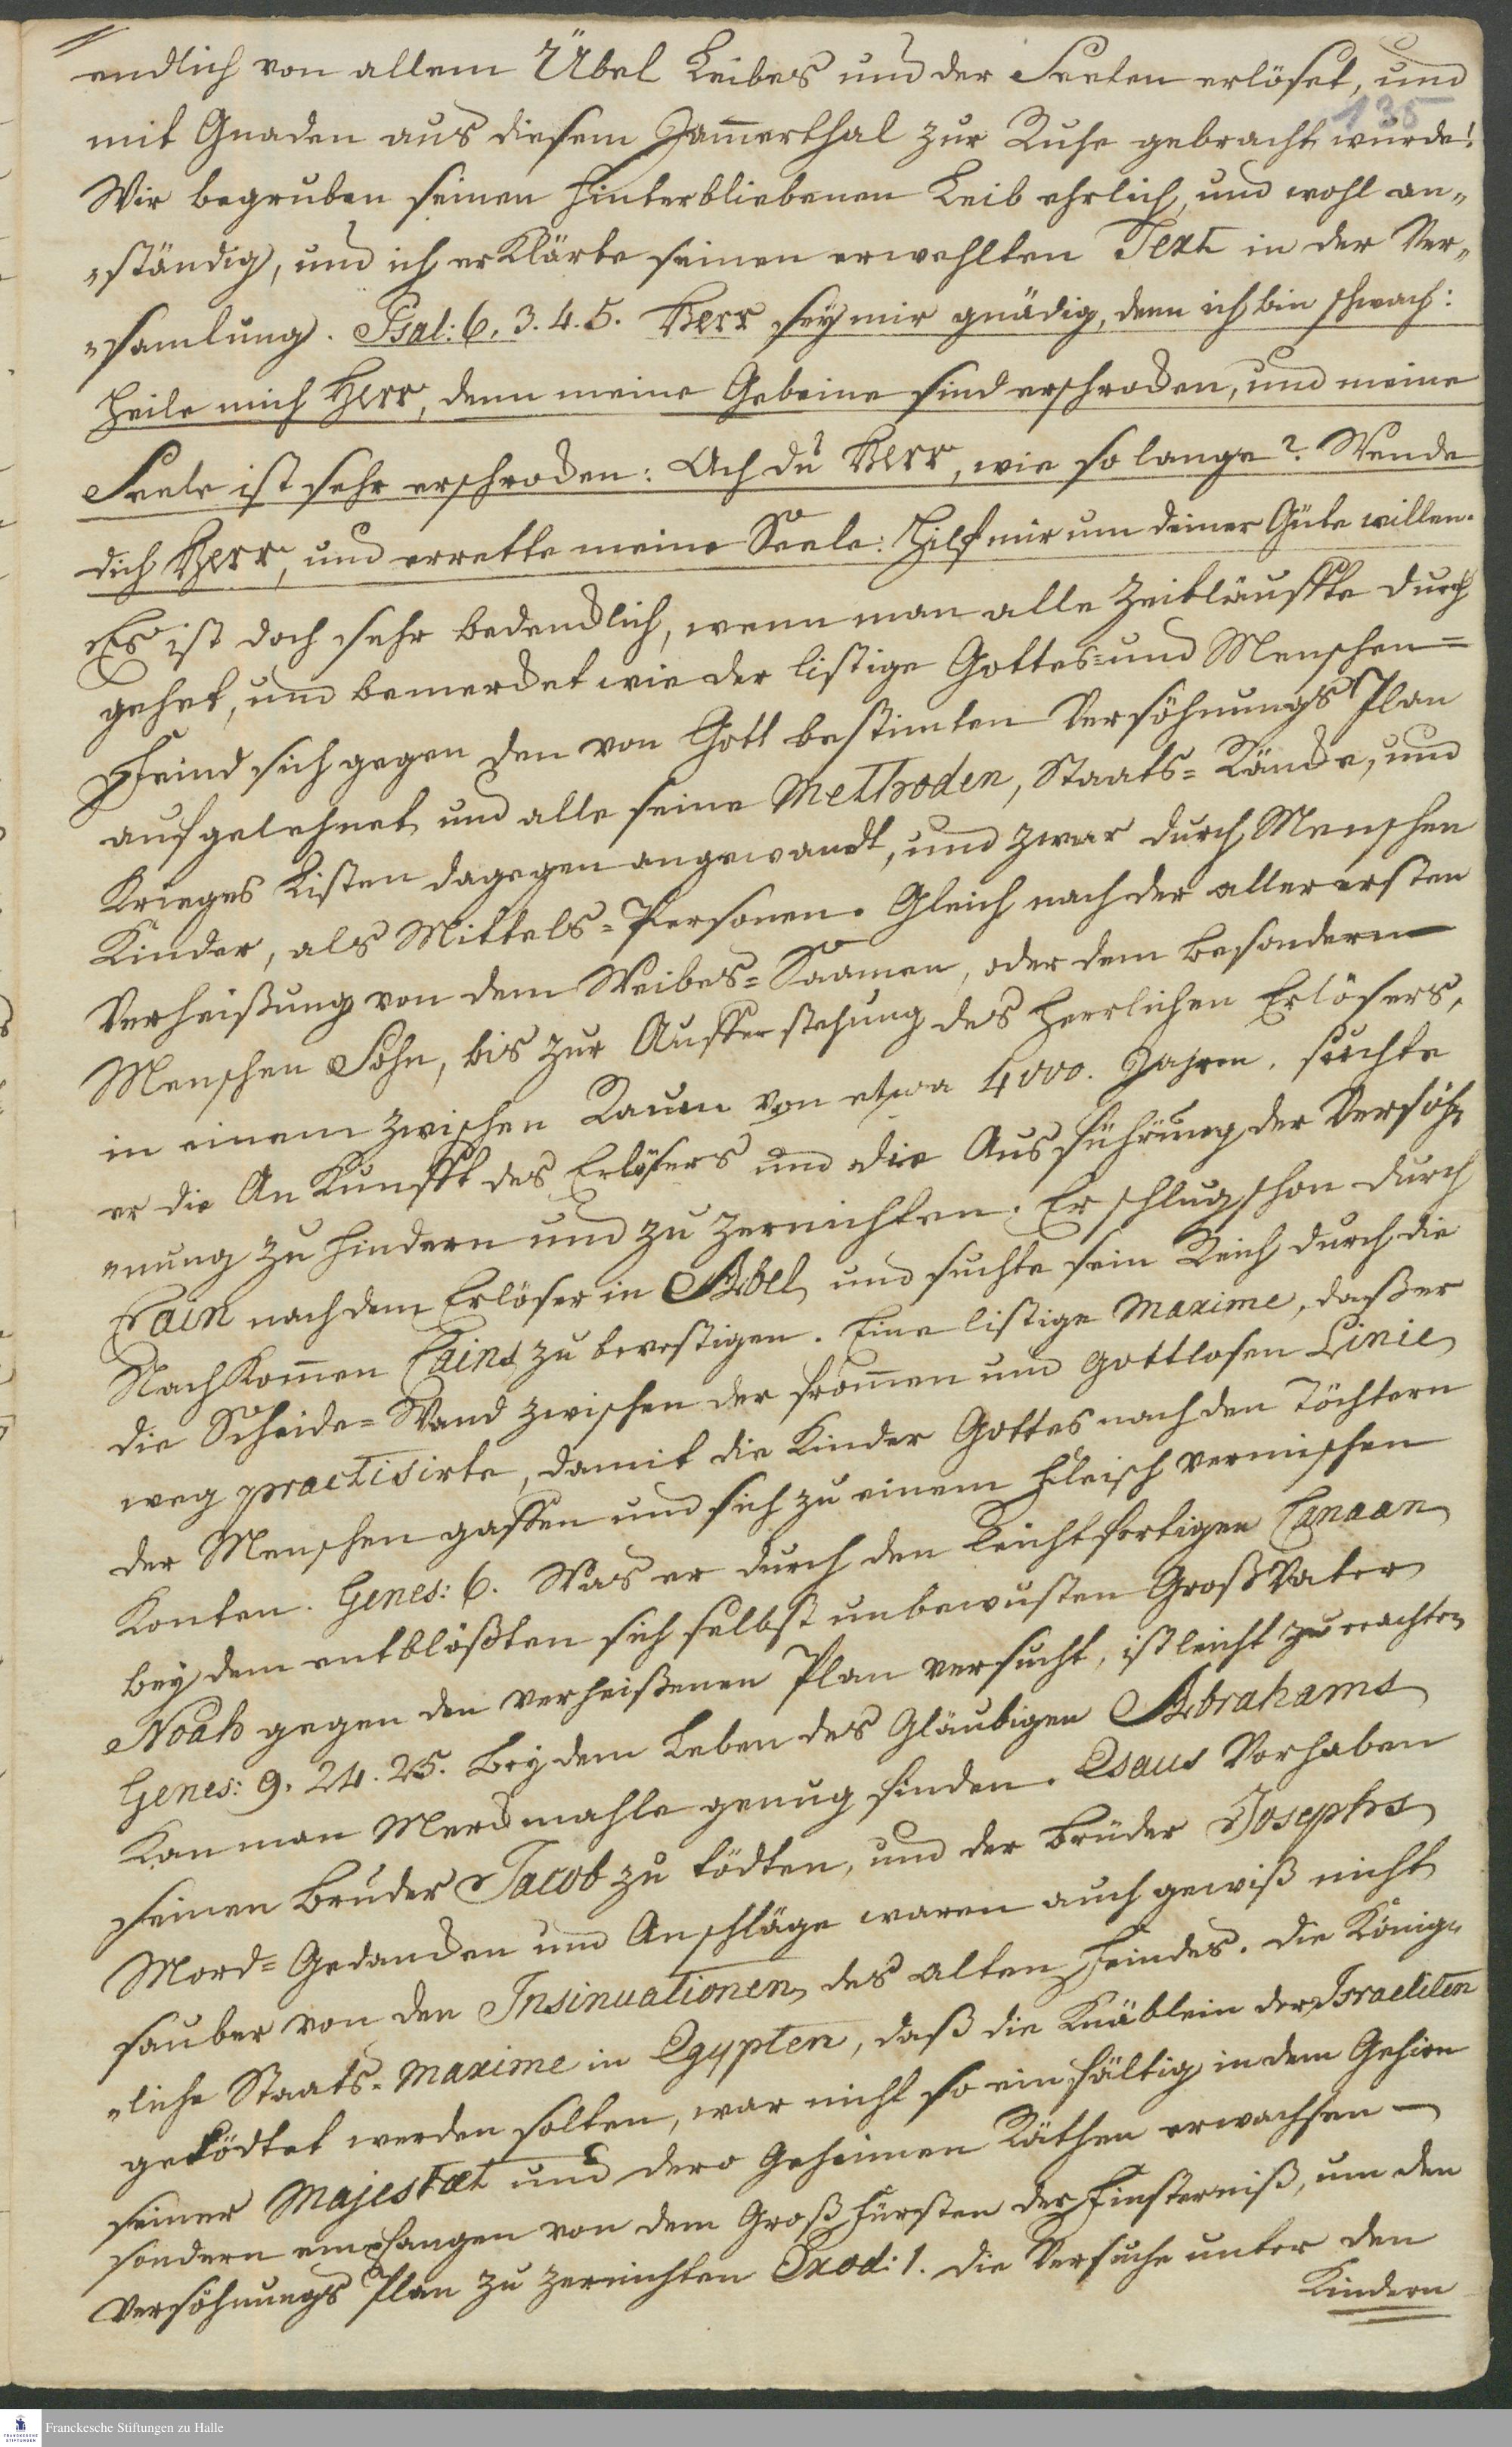 endlich von allem Übel Leibes und der Seelen erlöset, und
135
mit Gnaden aus diesem Jam̄erthal zur Ruhe gebracht wurde!
Wir begruben seinen hinterbliebenen Leib ehrlich, und wohl an„
„ständig, und ich erklärte seinen erwehlten Text in der Ver„
„samlung. Psal: 6, 3. 4. 5. Herr sey mir gnädig, denn ich bin schwach:
heile mich Herr, denn meine Gebeine sind erschrocken, und meine
Seele ist sehr erschrocken: Ach du Herr, wie so lange? Wende
dich Herr, und errette meine Seele: Hilf mir um deiner Güte willen.
Es ist doch sehr bedencklich, wenn man alle Zeitläuffte durch
gehet, und bemercket wie der listige Gottes- und Menschen=
Feind sich gegen den von Gott bestimten Versöhnungs Plan
aufgelehnet und alle seine Methoden, Staats= Räncke, und
Krieges Listen dagegen angewandt, und zwar durch Menschen
Kinder, als Mittels=Personen. Gleich nach der allerersten
Verheißung von dem Weibes=Saamen, oder dem besondern
Menschen Sohn, bis zur Aufferstehung des herrlichen Erlösers,
in einem zwischen Raum von etwa 4000. Jahren, suchte
er die Ankunfft des Erlösers und die Ausführung der Versöh„
„nung zu hindern und zu zernichten. Er schlug schon durch
Cain nach dem Erlöser in Abel und suchte sein Reich durch die
Nachkom̄en Cains zu bevestigen. Eine listige Maxime, daß er
die Scheide=Wand zwischen der from̄en und gottlosen Linie
weg practisirte, damit die Kinder Gottes nach den Töchtern
der Menschen gaffen und sich zu einem Fleisch vermischen
konten. Genes: 6. Was er durch den leichtfertigen Canaan
bey dem entblößten sich selbst unbewusten Groß Vater
Noah gegen den verheißenen Plan versucht, ist leicht zu erachten
Genes: 9. 24. 25. Bey dem Leben des Gläubigen Abrahams
kan man Merckmahle genug finden. Esaus Vorhaben
seinen Bruder Jacob zu tödten, und der Brüder Josephs
Mord= Gedancken und Anschläge waren auch gewiß nicht
sauber von den Insinuationen des alten Feindes. Die König„
„liche Staats= Maxime in Egypten, daß die Knäblein der Israeliten
getödtet werden solten, war nicht so einfältig in dem Gehirn
seiner Majestæt und dero Geheimen Räthen erwachsen —
sondern empfangen von dem Groß Fürsten der Finsterniß, um den
Versöhnungs Plan zu zernichten Exod: 1. Die Versuche unter den
Kindern
Franckesche Stiftungen zu Halle